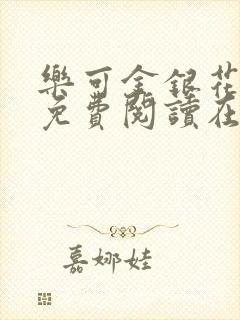 樂可金銀花
免費閱讀在
嘉娜娃